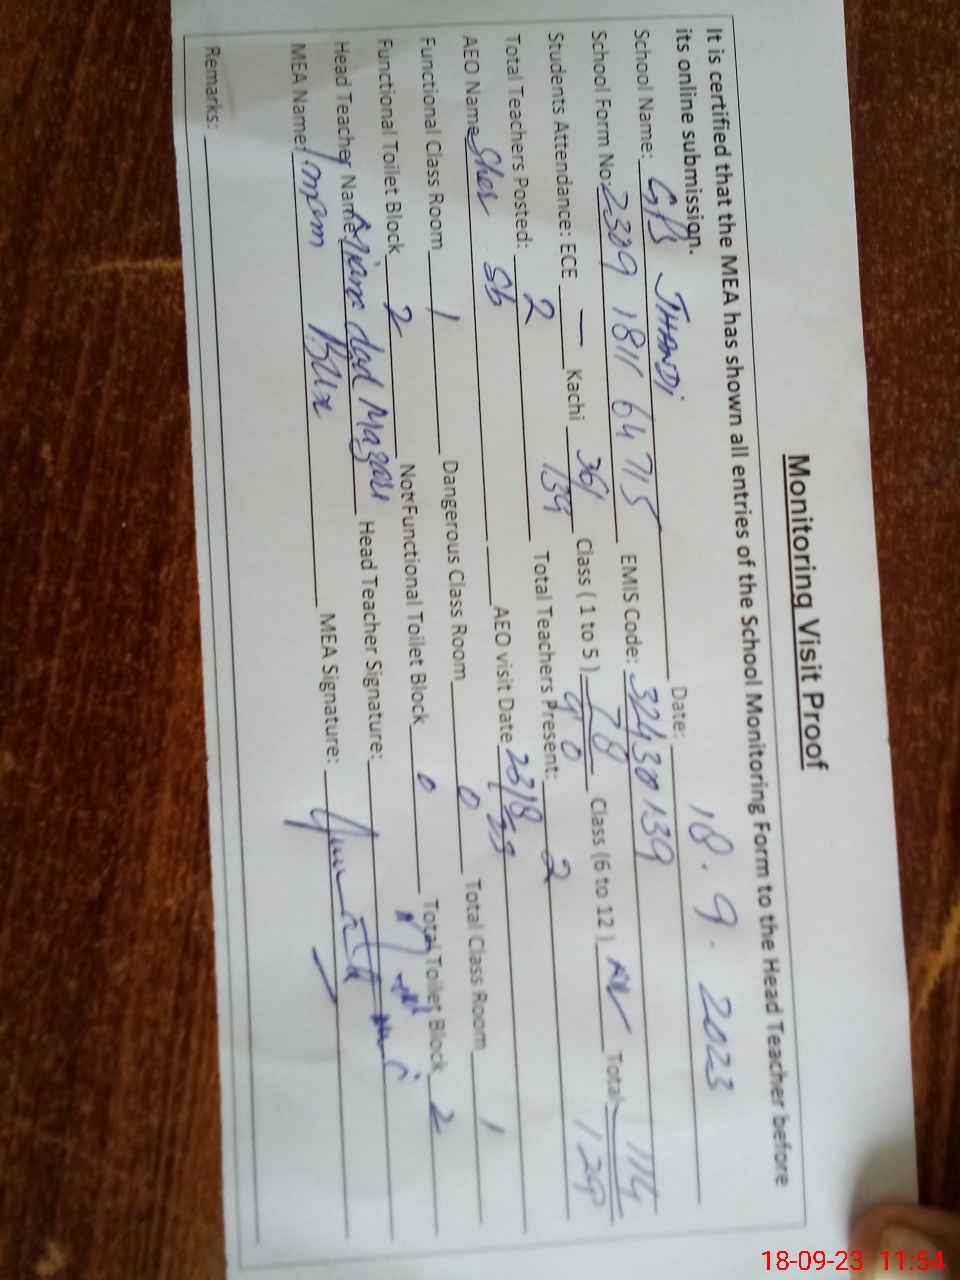 Monitoring Visit Proof
It is certified that the MEA has shown all entries of the School Monitoring Form to the Head Teacher before
its online submission.
School Name: GPS JHANDI Date: 18.9.2023
School Form No: 2309 1811 64715 EMIS Code: 32430139
Students Attendance: ECE — Kachi 36/39 Class ( 1 to 5 ) 78/90 Class (6 to 12 ) Total 114/129
Total Teachers Posted: 2 Total Teachers Present: 2
AEO Name Sher Sb AEO visit Date 23/8/23
Functional Class Room 1 Dangerous Class Room 0 Total Class Room 1
Functional Toilet Block 2 Not Functional Toilet Block 0 Total Toilet Block 2
Head Teacher Name Miane dad Mazari Head Teacher Signature:
MEA Name: Imam Bux MEA Signature:
Remarks:
18-09-23 11:54